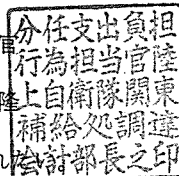 分任支出負担
行為担当官陸
上自衛隊関東
補給処調達
会計部長之印
隆